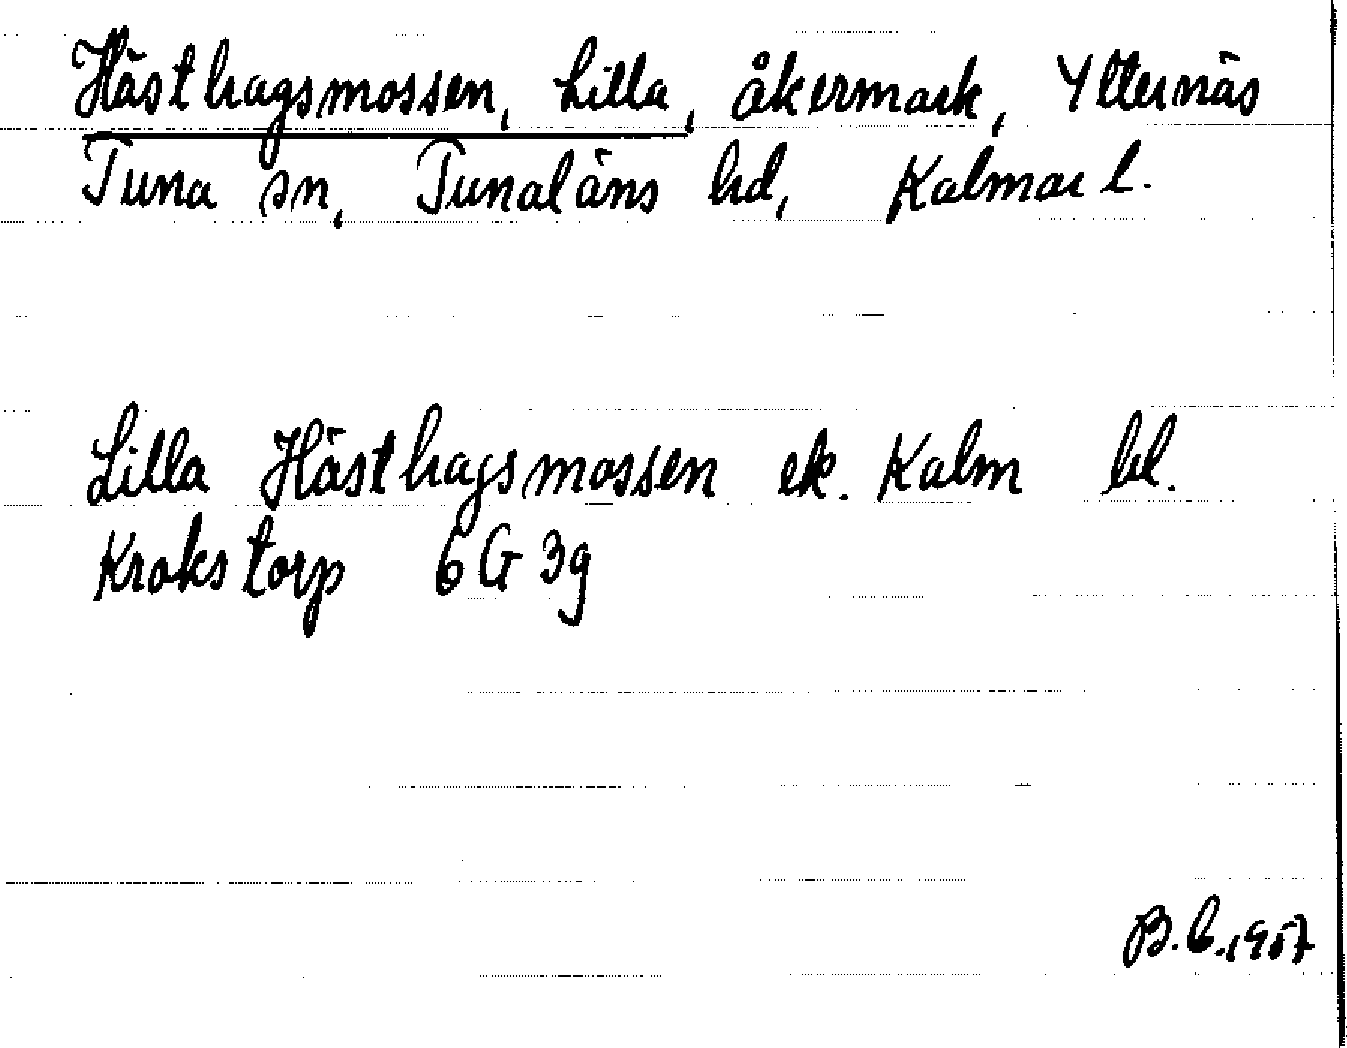 Hästhagsmossen, Lilla, åkermark, Ytternäs
Tuna sn, Tunaläns hd, Kalmar l.
Lilla Hästhagsmossen ek. Kalm bl.
Krokstorp 6G 3g
B.C. 1957